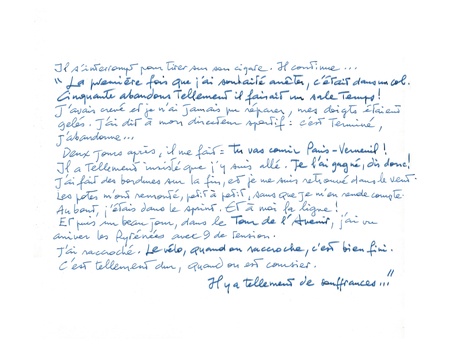 Il s'interrompt pour tirer sur son cigare. Il continue...
"La première fois que j'ai souhaité arrêter, c'était dans un col.
Cinquante abandons tellement il faisait un sale temps!
J'avais crevé et je n'ai jamais pu réparer, mes doigts étaient
gelés. J'ai dit à mon directeur sportif : c'est terminé,
j'abandonne...
Deux jours après, il me fait = tu vas courir Paris-Verneuil!
Il a tellement insisté que j'y suis allé. Je l'ai gagné, dis donc!
J'ai fait des bordures sur la fin, et je me suis retrouvé dans le vent.
Les potes m'ont remonté, petit à petit, sans que je m'en rende compte.
Au bout, j'étais dans le sprint. Et à moi la ligne!
Et puis un beau jour, dans le Tour de l'Avenir, j'ai vu
arriver les Pyrénées avec 9 de tension.
J'ai raccroché. Le vélo, quand on raccroche, c'est bien fini.
C'est tellement dur, quand on est coursier.
Il y a tellement de souffrances..."